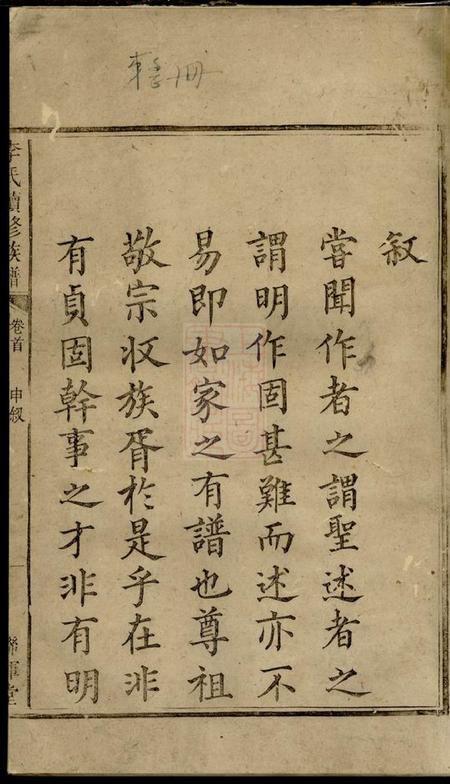 敘
嘗聞作者之謂聖述者之
謂明作固甚難而述亦不
易即如家之有譜也尊祖
敬宗収族胥於是乎在非
有貞固幹事之才非有明
李氏續修族譜
卷首
申敘